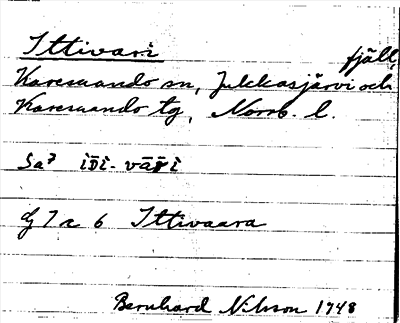 Ittivari fjäll,
Karesuando sn, Jukkasjärvi och
Karesuando tg, Norrb. l.
Sa? ìD̄ì-vāřì
G 7 x 6 Ittivaara
Bernhard Nilsson 1948